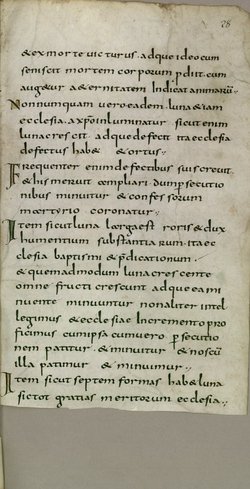 28
& ex morte victurus. adque ideo cum
seniscit mortem corporum p̄dicit. cum
aug&ur a&ernitatem Indicat animarū.
Nonnumquam vero eadem luna & iam
ecclesia. a xp̄o inluminatur sicut enim
luna crescit adque defecit ita ecclesia
defectus hab& & ortus.
Frequenter enim defectibus suis crevit
& his meruit āmpliari. Dum p̱secutio
nibus minuitur & confessorum
martyrio coronatur.
Item sicut luna larga est roris & dux
humentium substantiarum. ita ec
clesia baptismi & p̄dicationum.
& quem admodum luna crescente
omne fructi crescunt adque ea mi
nuente minuuntur non aliter intel
legimus & ecclesiae Incremento pro
ficimus cum ipsa cum vero p̱secutio
nem patitur. & minuitur & nos cū
illa patimur & minuimur.
Item sicut septem formas hab& luna
sic tot gratias meritorum ecclesia.